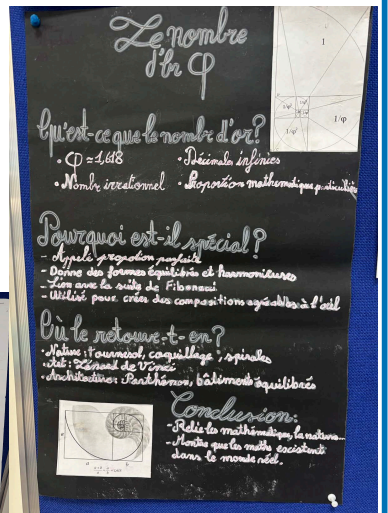 Le nombre
d'or φ
1
1/φ
Qu'est-ce que le nombre d'or?
• φ ≈ 1,618 • Décimales infinies
• Nombre irrationnel • Proportion mathématique particulière
Pourquoi est-il spécial?
- Appelé propotion parfaite
- Donne des formes équilibrés et harmonieuses
- Lien avec la suite de Fibonacci
- Utilisé pour créer des compositions agréables à l'oeil
Où le retouve-t-on?
• Nature: tournesol, coquillage, spirales
• Art: Léonard de Vinci
• Architecture: Parthénon, bâtiments équilibrés
Conclusion:
- Relie les mathématiques, la nature...
- Montre que les maths existent
dans le monde réel.
a b